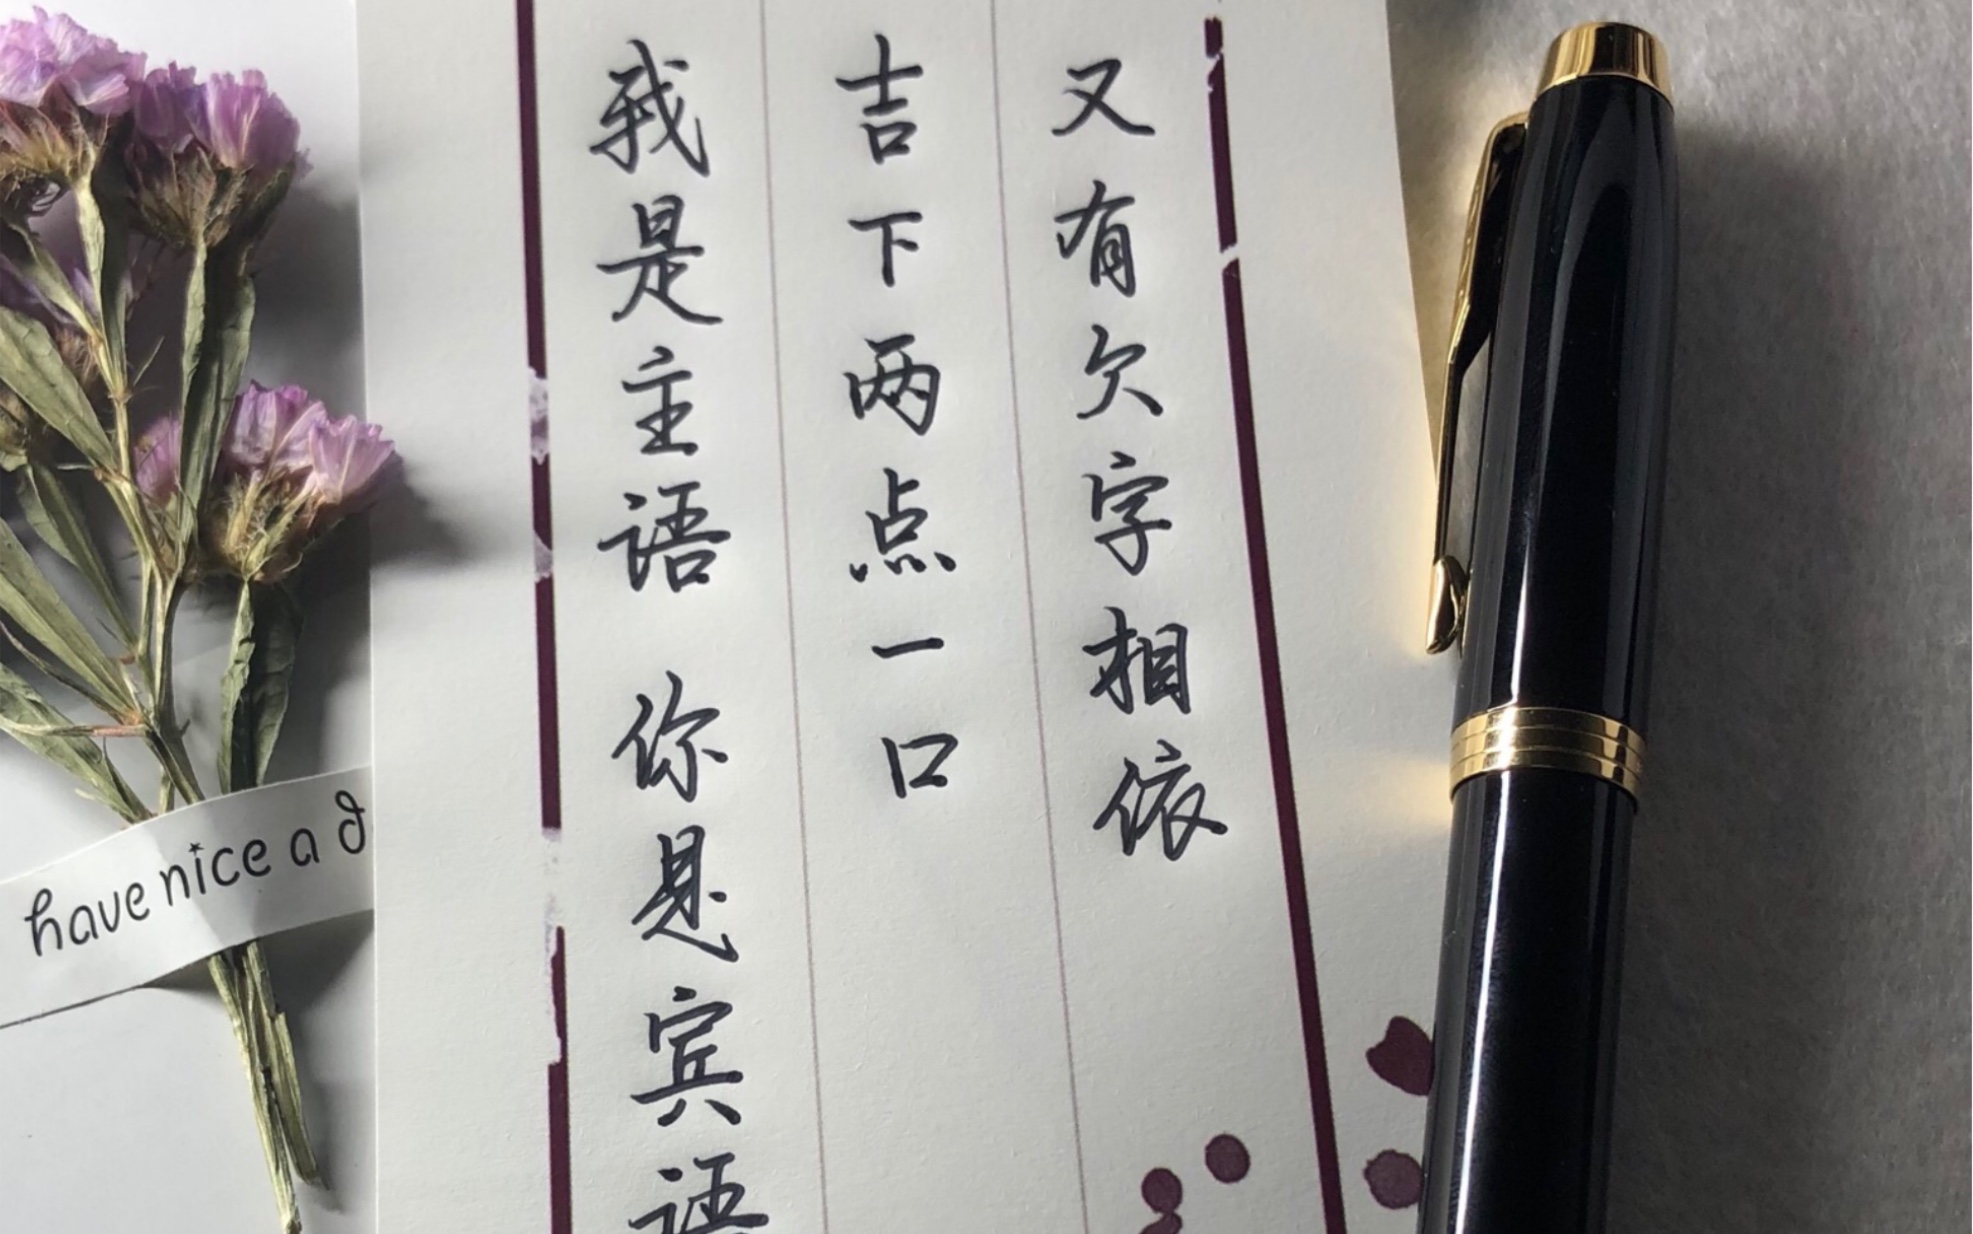 又有欠字相依
吉下两点一口
我是主语 你是宾语
have nice a d